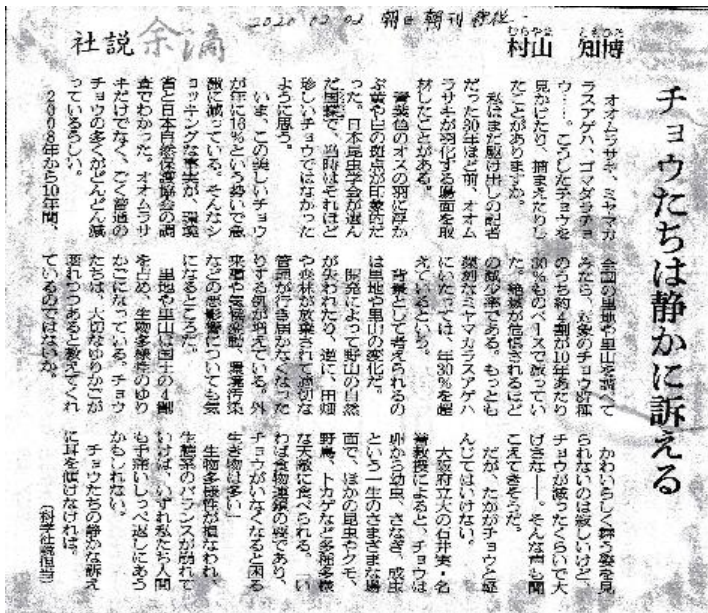 2020 12 02 朝日朝刊
社説 余滴
村山 知博
むらやま ともひろ
チョウたちは静かに訴える
オオムラサキ、ミヤマカ
ラスアゲハ、ゴマダラチョ
ウ……。こうしたチョウを
見かけたり、捕まえたりし
たことがありますか。
私はまだ駆け出しの記者
だった30年ほど前、オオム
ラサキが羽化する場面を取
材したことがある。
青紫色のオスの羽に浮か
ぶ黄や白の斑点が印象的だ
った。日本昆虫学会が選ん
だ国蝶で、当時はそれほど
珍しいチョウではなかった
ように思う。
いま、この美しいチョウ
が年に16%という勢いで急
激に減っている。そんなシ
ョッキングな事実が、環境
省と日本自然保護協会の調
査でわかった。オオムラサ
キだけでなく、ごく普通の
チョウの多くがどんどん減
っているらしい。
2008年から10年間、
全国の里地や里山を調べて
みたら、対象のチョウ87種
のうち約4割が10年あたり
30%ものペースで減ってい
た。絶滅が危惧されるほど
の減少率である。もっとも
深刻なミヤマカラスアゲハ
にいたっては、年30%を超
えているという。
背景として考えられるの
は里地や里山の変化だ。
開発によって野山の自然
が失われたり、逆に、田畑
や森林が放棄されて適切な
管理が行き届かなくなった
りする例が増えている。外
来種や気候変動、環境汚染
などの悪影響についても気
になるところだ。
里地や里山は国土の4割
を占め、生物多様性のゆり
かごになっている。チョウ
たちは、大切なゆりかごが
壊れつつあると教えてくれ
ているのではないか。
かわいらしく舞う姿を見
られないのは寂しいけど、
チョウが減ったくらいで大
げさな――。そんな声も聞
こえてきそうだ。
だが、たかがチョウと軽
んじてはいけない。
大阪府立大の石井実・名
誉教授によると、チョウは
卵から幼虫、さなぎ、成虫
という一生のさまざまな場
面で、ほかの昆虫やクモ、
野鳥、トカゲなど多種多様
な天敵に食べられる。「い
わば食物連鎖の要であり、
チョウがいなくなると困る
生き物は多い」
生物多様性が損なわれ、
生態系のバランスが崩れて
いけば、いずれ私たち人間
も手痛いしっぺ返しにあう
かもしれない。
チョウたちの静かな訴え
に耳を傾けなければ。
(科学社説担当)